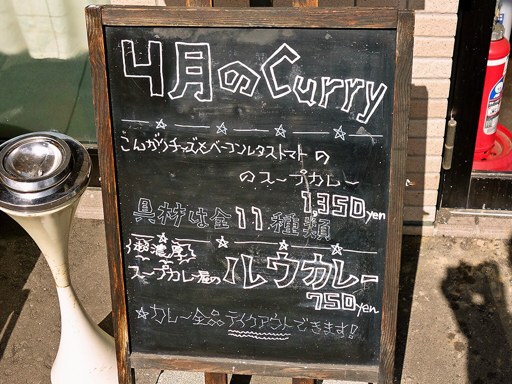 4月のCurry
こんがりチーズとベーコンレタストマトの
のスープカレー
1,350yen
具材は全11種類
濃厚
スープカレー屋の
ルウカレー
750yen
☆カレー全品テイクアウトできます!